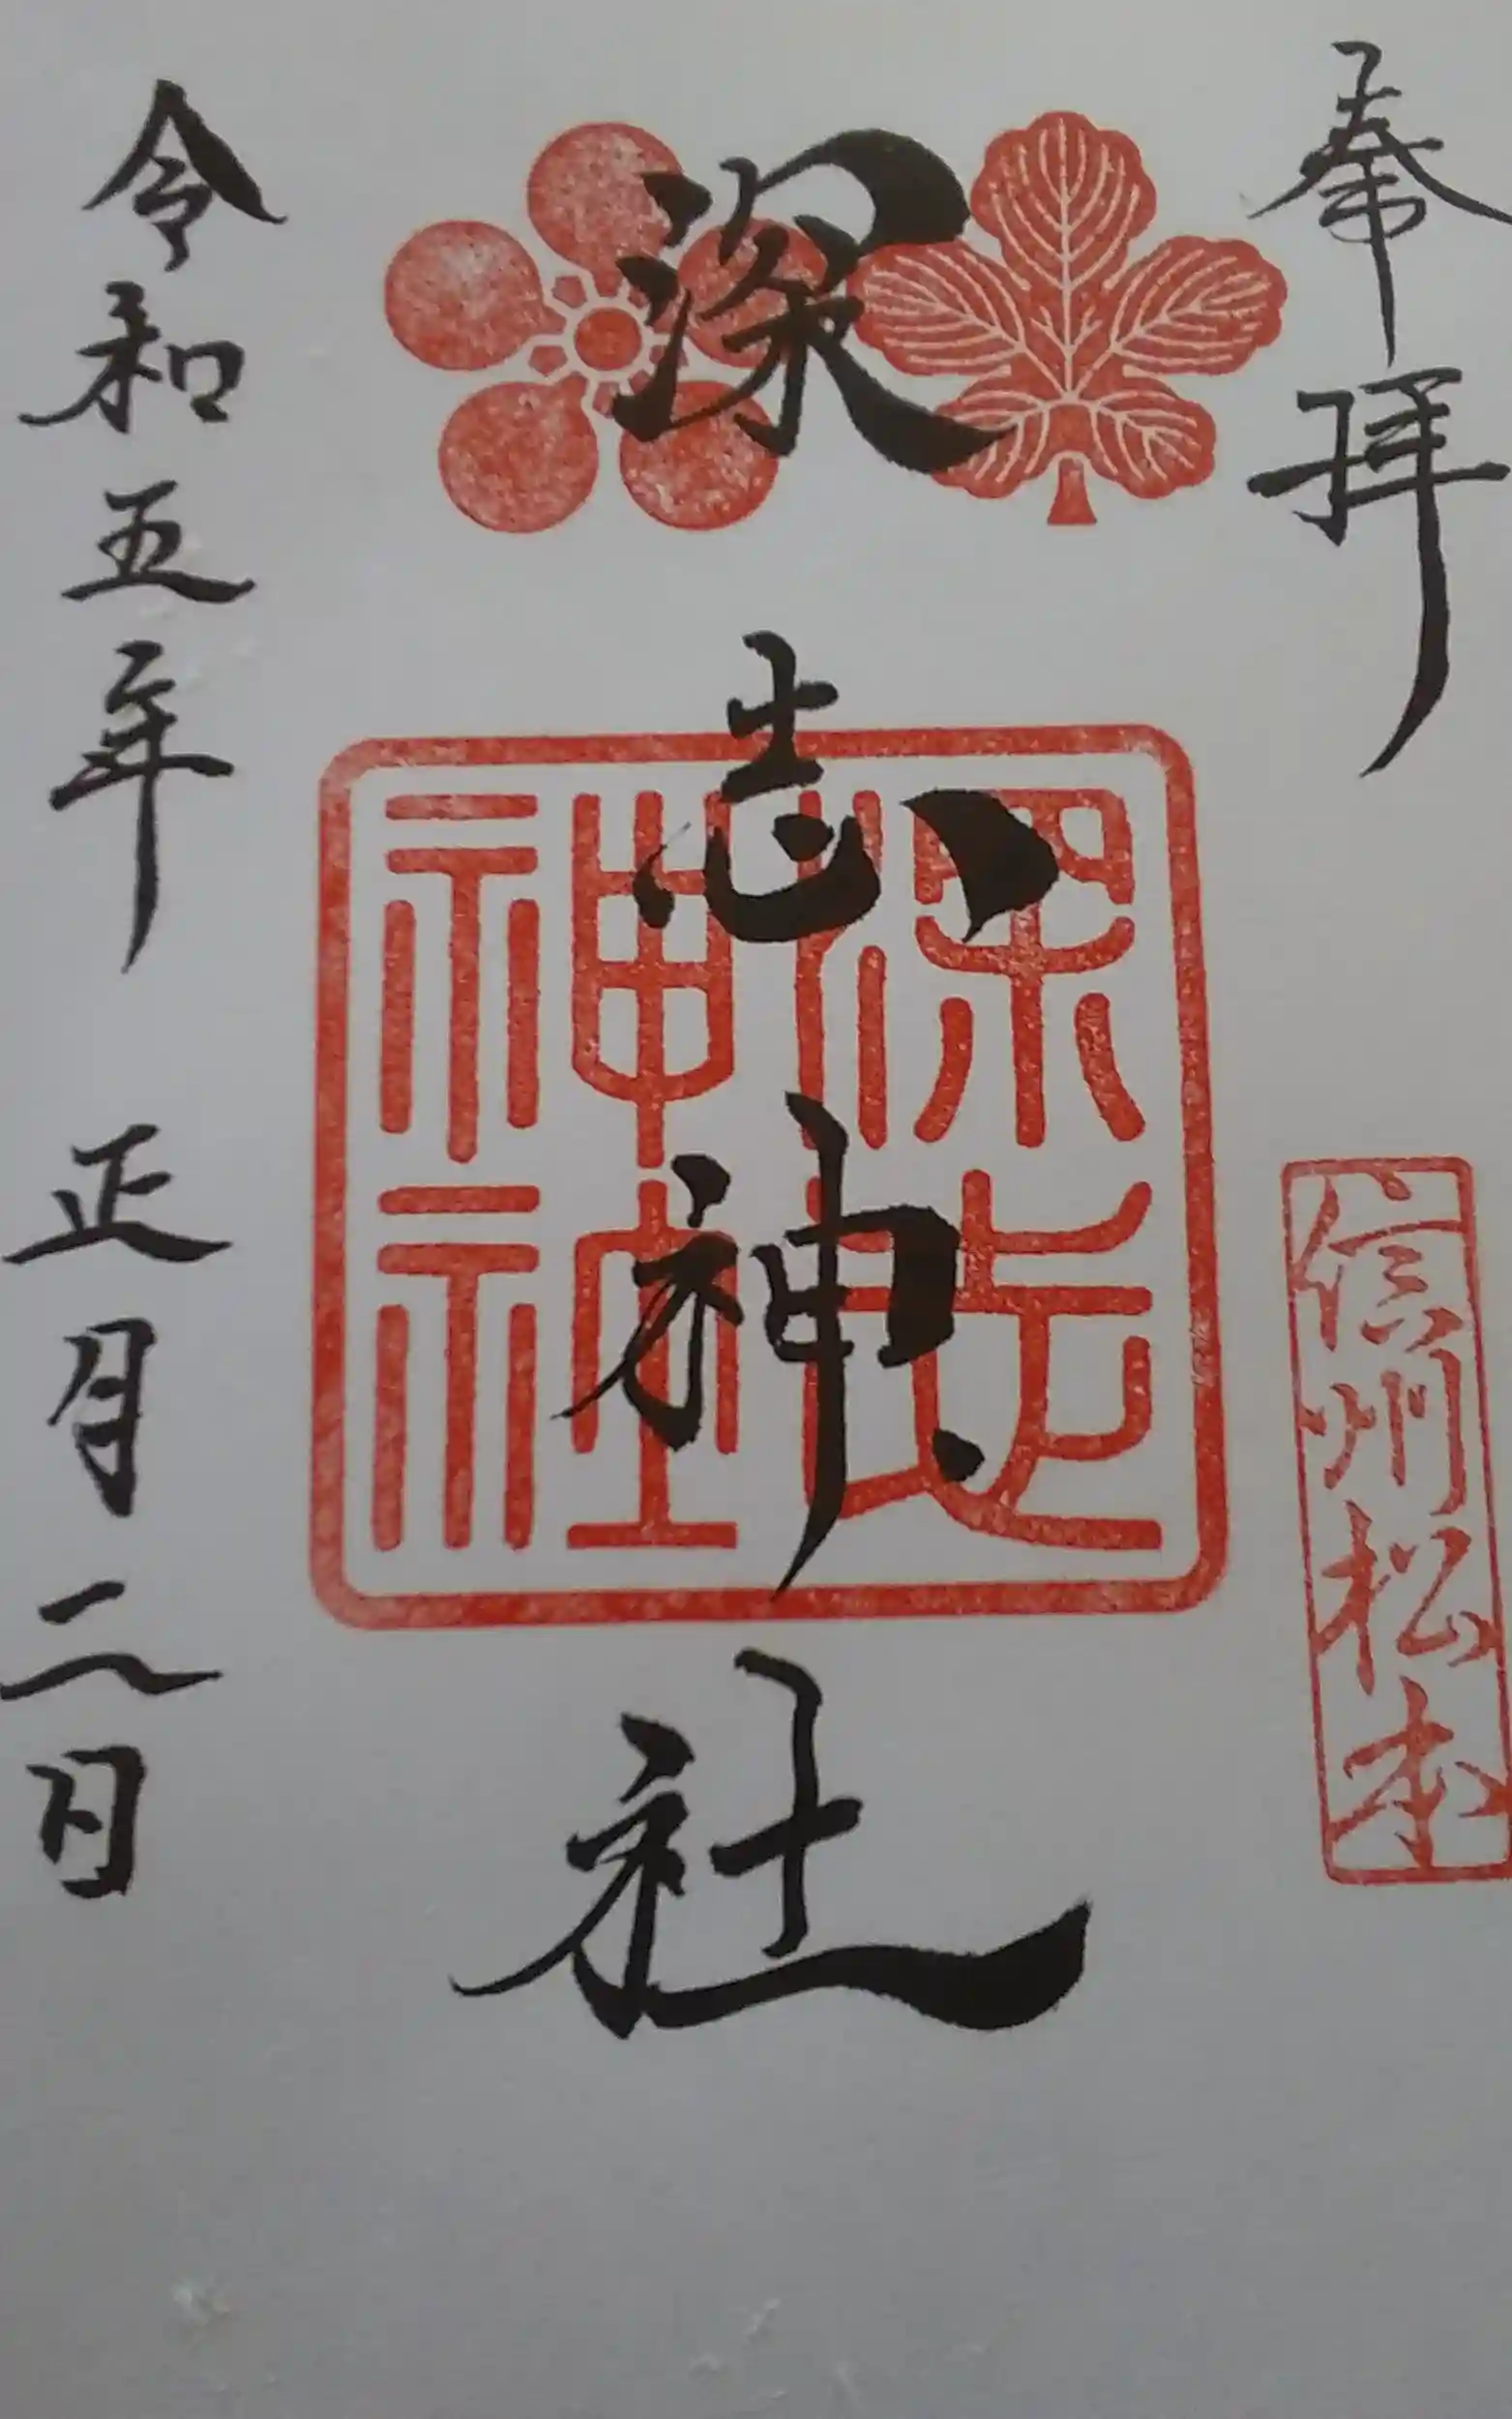 奉拝
信州松本
深志神社
深志神社
令和五年 正月二日